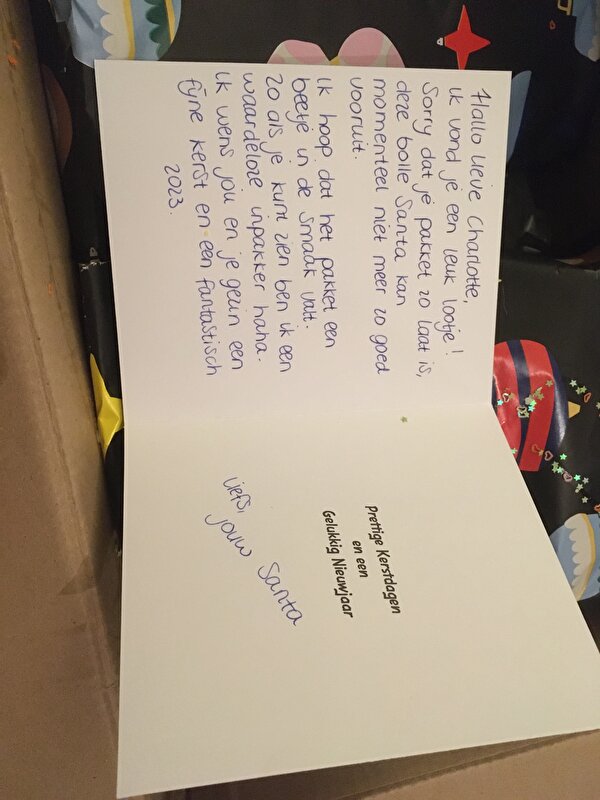 Hallo lieve Charlotte,
ik vond je een leuk lootje!
Sorry dat je pakket zo laat is,
deze bolle Santa kan
momenteel niet meer zo goed
vooruit.
Ik hoop dat het pakket een
beetje in de smaak valt.
Zo als je kunt zien ben ik een
waardeloze inpakker haha.
Ik wens jou en je gezin een
fijne kerst en een fantastisch
2023.
Prettige Kerstdagen
en een
Gelukkig Nieuwjaar
Liefs,
jouw Santa